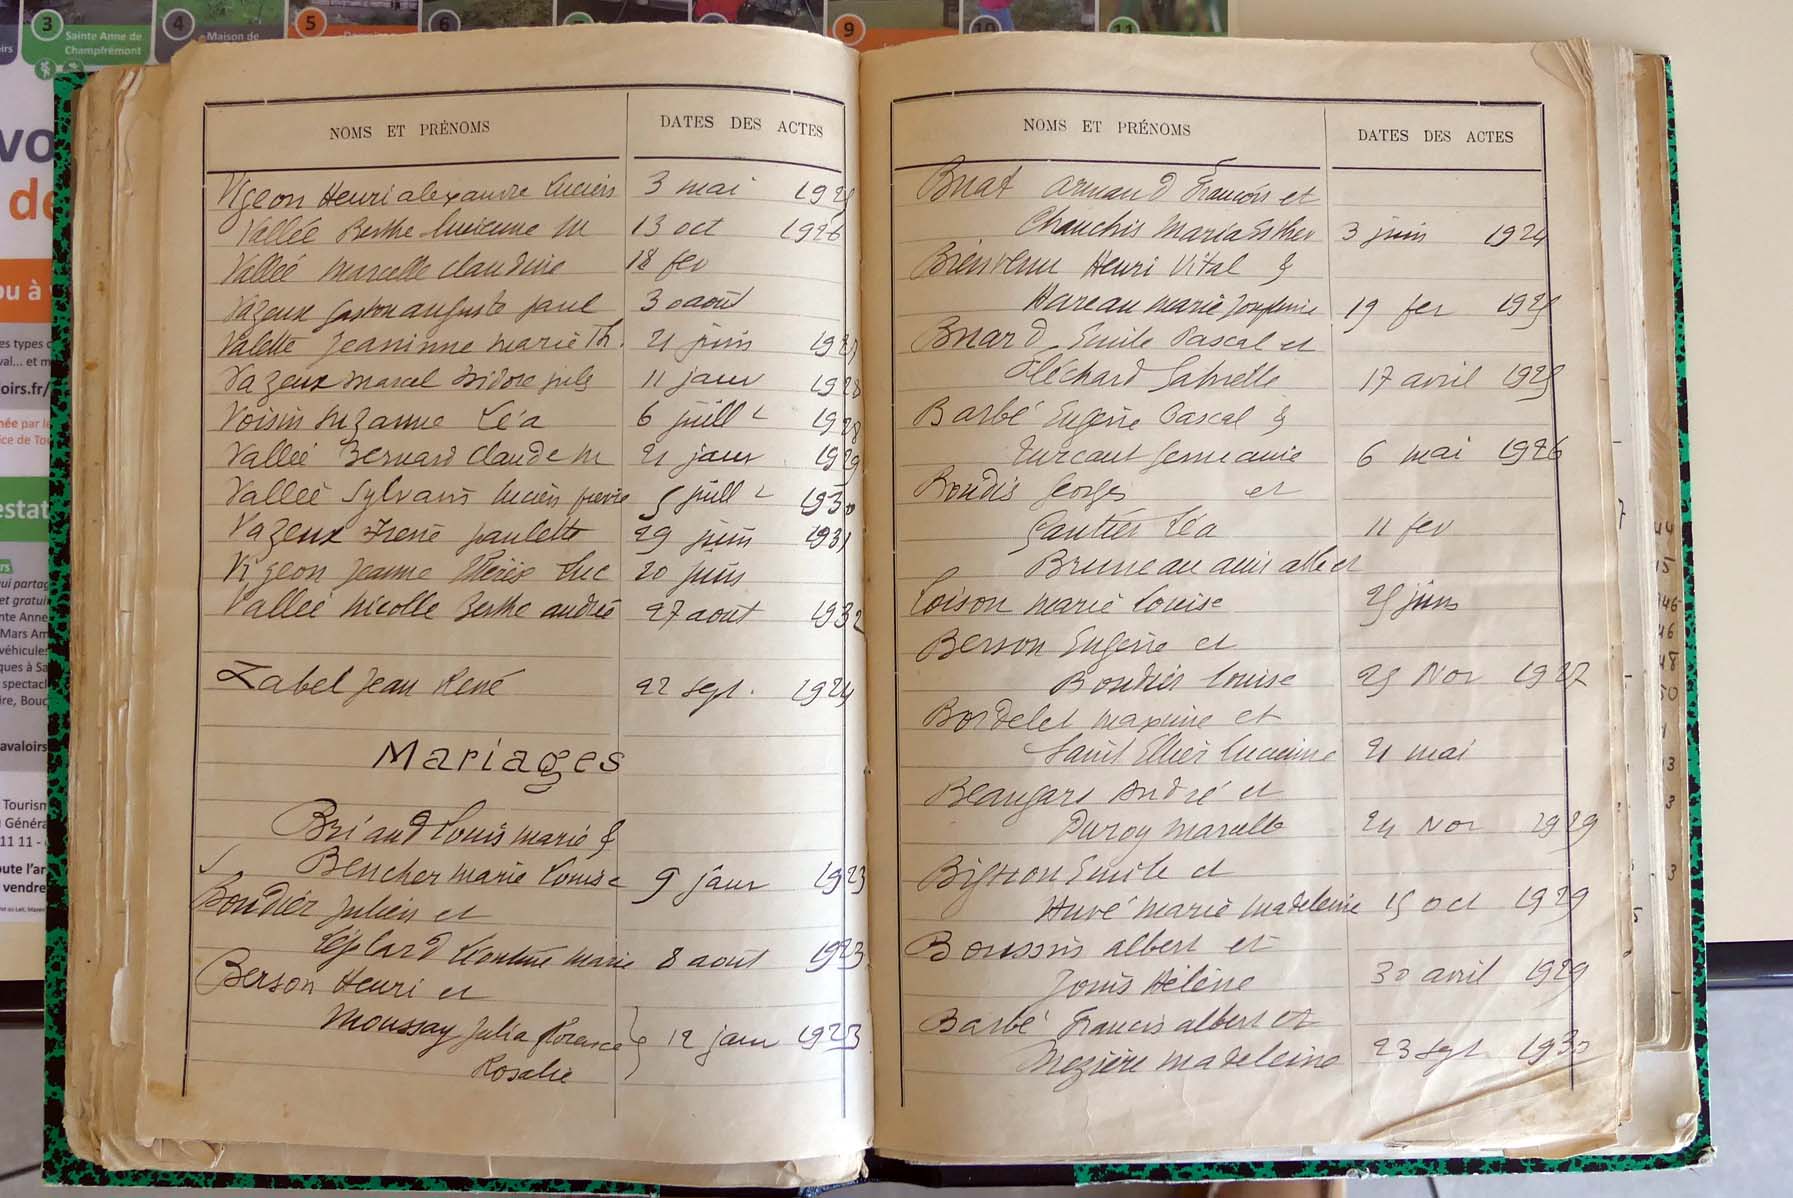 3
Sainte Anne de
Champfrémont
4
Maison de
5
6
9
10
11
vo
de
ou à
loirs.fr/
estat
avaloirs
Tourism
11 11 -
vendre
NOMS ET PRÉNOMS DATES DES ACTES
Vigeon Henri alexandre Lucien 3 mai 192
Vallée Berthe Lucienne M 13 oct 1926
Vallée Marcelle Claudine 18 fev
Vazeux Gaston auguste paul 30 août
Valette Jeaninne Marie Th. 21 juin 192
Vazeux Marcel Isidore jules 11 janv 1928
Voisin Suzanne Léa 6 juill 1928
Vallée Bernard Claude M 21 janv 1929
Vallée Sylvain Lucien pierre 5 juill 1930
Vazeux Irene paulette 29 juin 1931
Vigeon Jeanne Thérèse Luc 20 juin
Vallée Nicolle Berthe andrée 27 aout 1932
Label Jean René 22 sept. 1924
Mariages
Briand Louis marie &
Bencher marie Louise 9 janv 1923
Boudier Julien et
Léplard Léontine marie 8 aout 1923
Berson Henri et
Moussay Julia Florence 12 janv 1923
Rosalie
NOMS ET PRÉNOMS DATES DES ACTES
Briat armand François et
Chauchis Maria Esther 3 juin 1924
Bienvenu Henri Vital &
Hareau marie Joséphine 19 fev 1925
Briard Emile Pascal et
Fléchard Gabrielle 17 avril 1925
Barbé Eugène Pascal &
Turcant Germanie 6 mai 1926
Boudis Georges et
Gautier Léa 11 fev
Bruneau albert
Loison marie Louise 25 juin
Berson Eugène et
Boudier Louise 25 Nov 1927
Bordelet maxime et
Saint Ellier Lucienne 21 mai
Beaugars André et
Duroy Marcelle 24 Nov 1929
Bignon Emile et
Huvé marie madeleine 15 oct 1929
Boussin albert et
Jouis Hélène 30 avril 1929
Barbé Francis albert et
Mezière madeleine 23 sept 1930